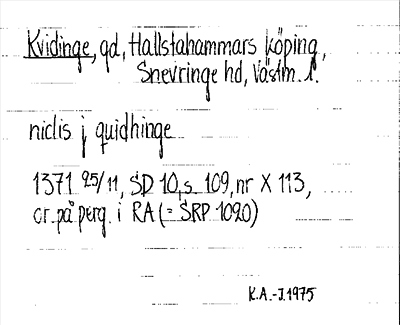 Kvidinge, gd, Hallstahammars köping,
Snevringe hd, Västm. l.
niclis j quidhinge
1371 25/11, SD 10, s 109, nr X 113,
or. på perg. i RA (= SRP 1020)
K.A.-J. 1975